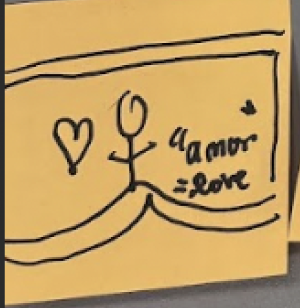 "amor
=love